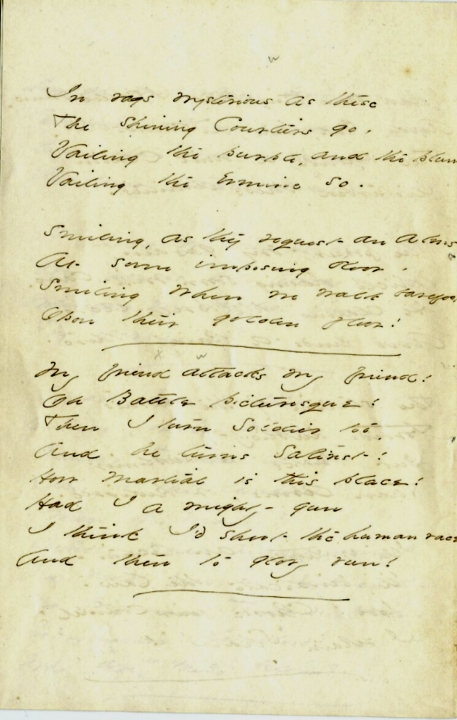 In rags mysterious as these
The shining Courtiers go.
Vailing the purple, and the plumes
Vailing the Ermine so.
Smiling, as they request an alms
At some imposing door.
Smiling when we walk barefoot
Upon their golden floor!
My friend attacks my friend!
Oh Battle picturesque!
Then I turn Soldier too,
And he turns Satirist!
How martial is this place!
Had I a mighty gun
I think I'd shoot the human race
And then to glory run!